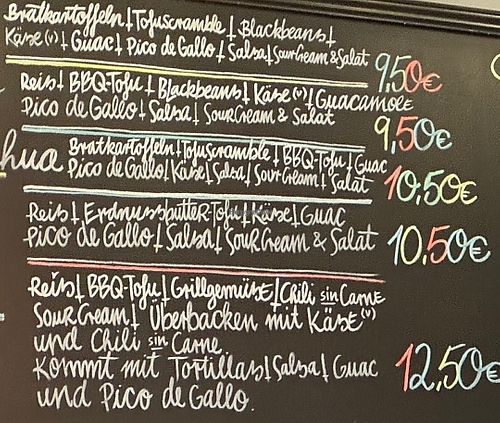 Bratkartoffeln | Tofuscramble | Blackbeans |
Käse (v) | Guac | Pico de Gallo | Salsa | Sour Cream & Salat
9,50€
Reis | BBQ-Tofu | Blackbeans | Käse (v) | Guacamole
Pico de Gallo | Salsa | Sour Cream & Salat
9,50€
hua Bratkartoffeln | Tofuscramble | BBQ-Tofu | Guac
Pico de Gallo | Käse | Salsa | Sour Cream | Salat
10,50€
Reis | Erdnussbutter-Tofu | Käse | Guac
Pico de Gallo | Salsa | Sour Cream & Salat
10,50€
Reis | BBQ-Tofu | Grillgemüse | Chili sin Carne
Sour Cream | Überbacken mit Käse (v)
und Chili sin Carne
Kommt mit Tortillas | Salsa | Guac
und Pico de Gallo.
12,50€